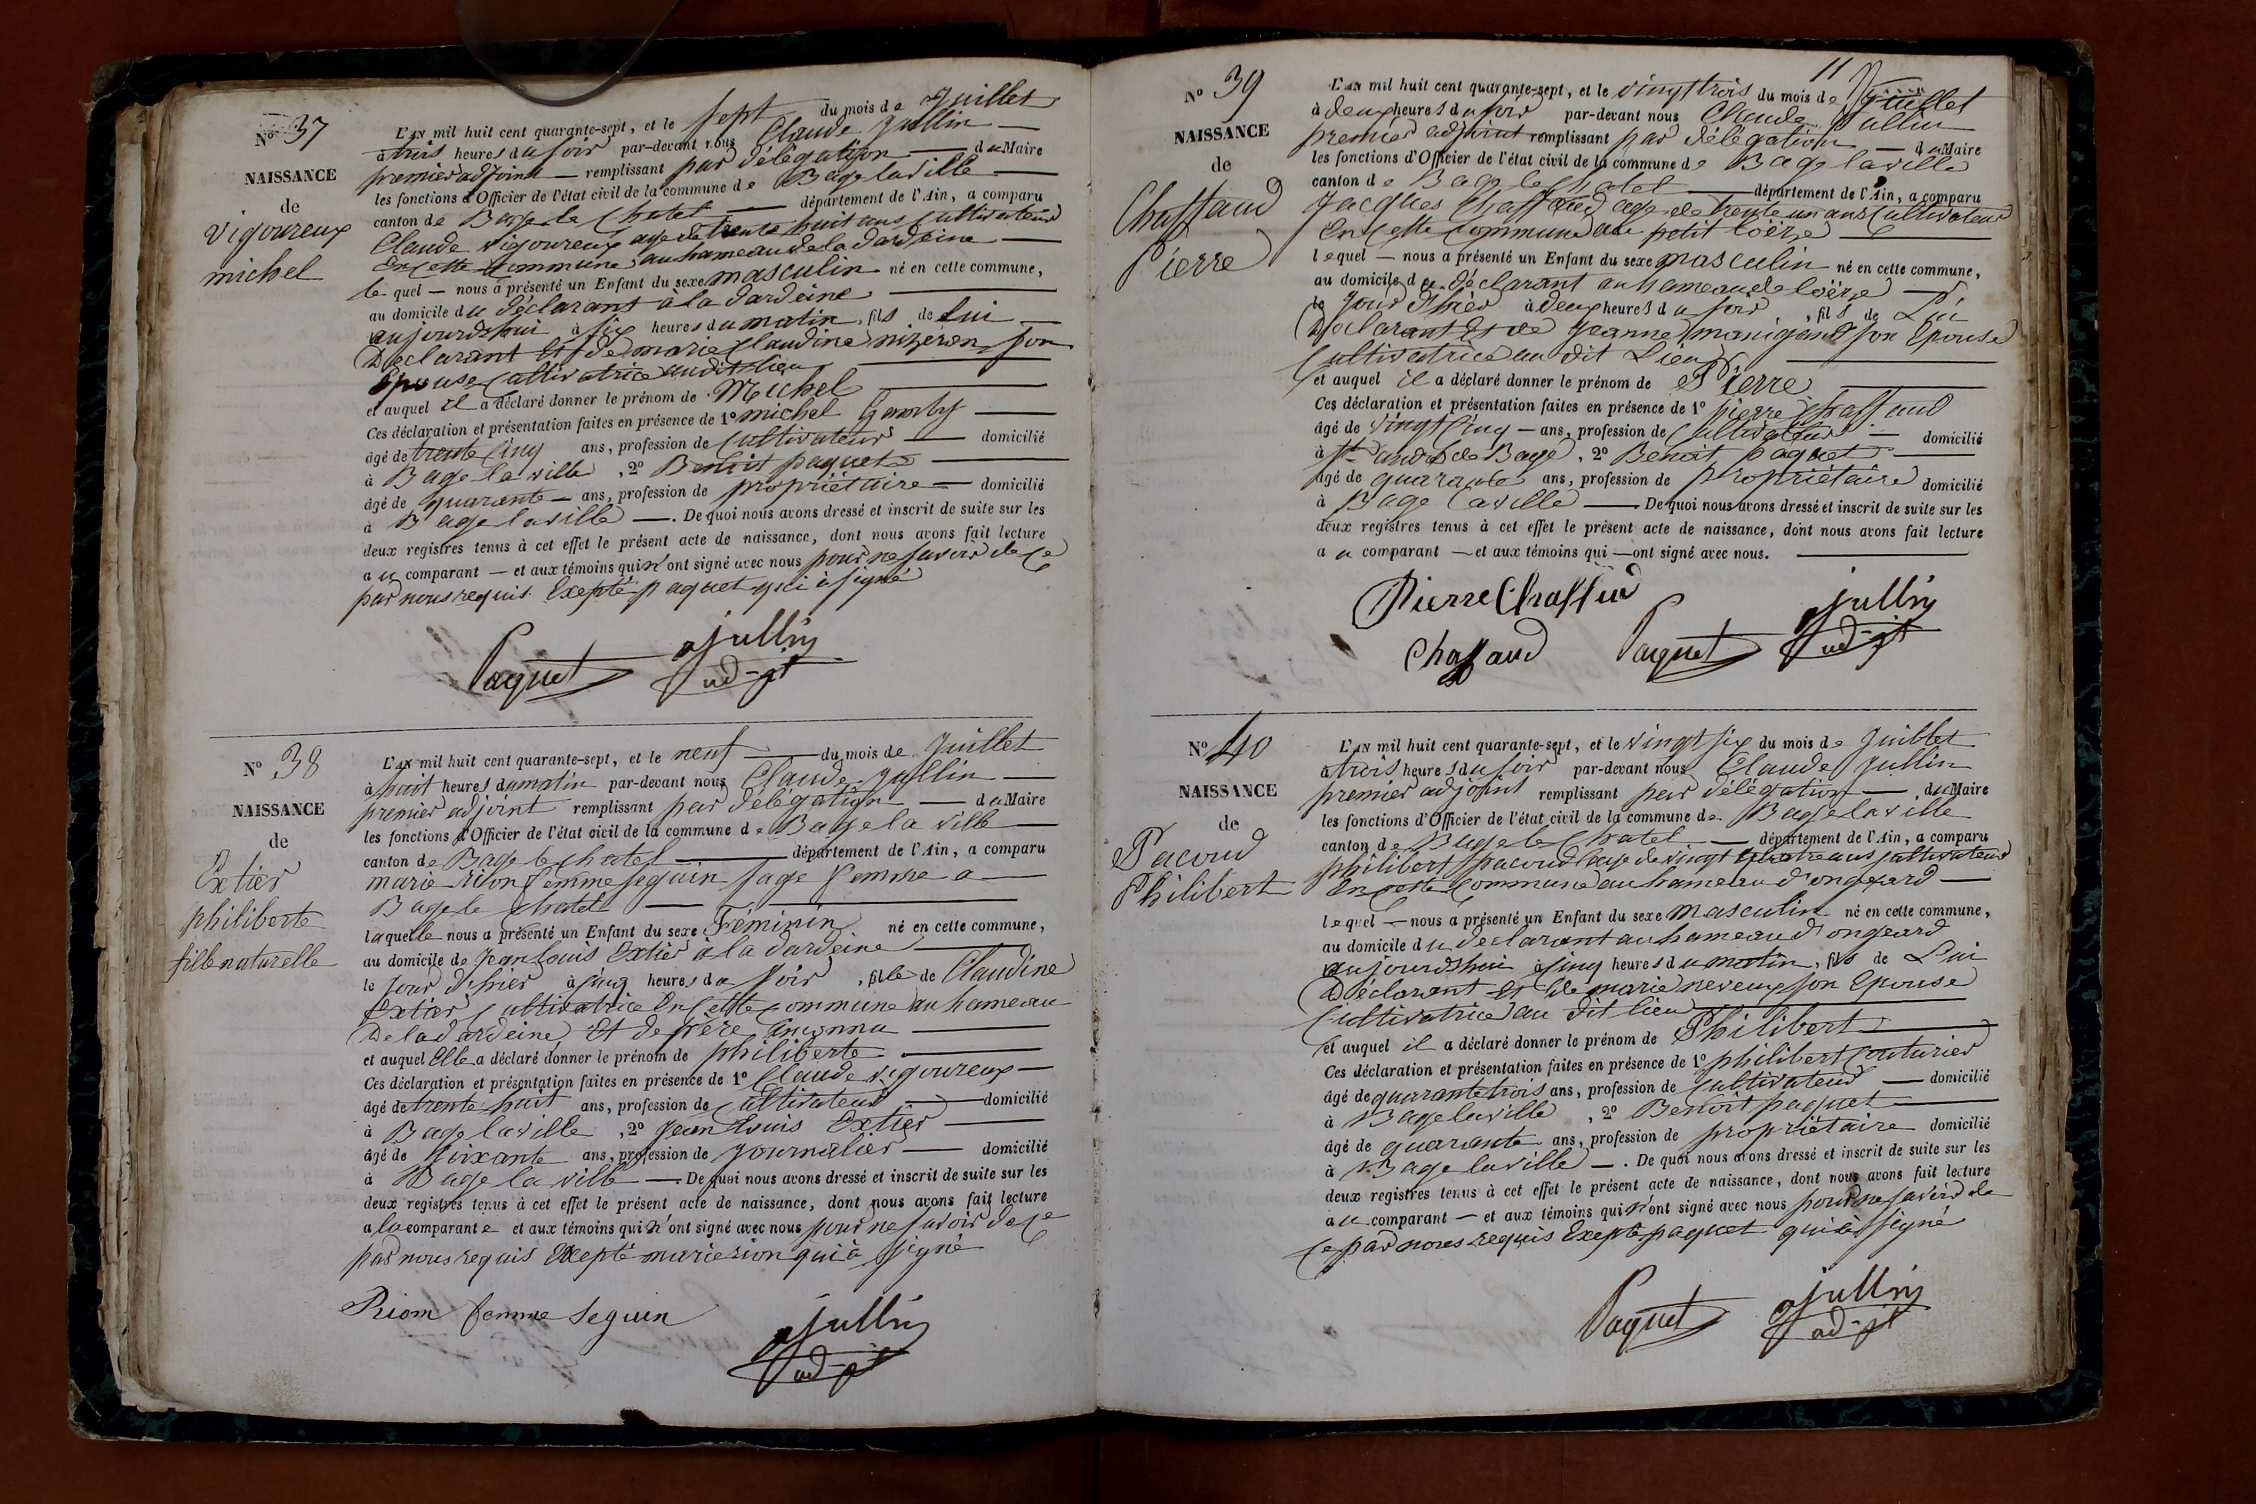 N° 37
NAISSANCE
de
Vigoureux
michel
L'AN mil huit cent quarante-sept, et le sept du mois de Juillet
à trois heures du soir par-devant nous Claude Jullin
premier adjoint remplissant par délégation du Maire
les fonctions d'Officier de l'état civil de la commune de Bage la ville
canton de Bage le Chatel département de l'Ain, a comparu
Claude Vigoureux age de trente huit ans Cultivateur
En Cette Commune au hameau de la dardeine
le quel nous a présenté un Enfant du sexe masculin né en cette commune,
au domicile du déclarant à la dardeine
aujourdhui à six heures du matin, fils de Lui
Declarant Et de marie Claudine mizeron son
Epouse Cultivatrice audit lieu
et auquel il a déclaré donner le prénom de Michel
Ces déclaration et présentation faites en présence de 1° michel
âgé de trente Cinq ans, profession de Cultivateur domicilié
à Bage la ville, 2° Benoit paquet
âgé de quarante ans, profession de propriétaire domicilié
à Bage la ville. De quoi nous avons dressé et inscrit de suite sur les
deux registres tenus à cet effet le présent acte de naissance, dont nous avons fait lecture
au comparant et aux témoins qui n'ont signé avec nous pour ne savoir de Ce
par nous requis Exepté paquet qui à signé
Paquet Jullin
adjt
N° 38
NAISSANCE
de
Extier
philiberte
fille naturelle
L'AN mil huit cent quarante-sept, et le neuf du mois de Juillet
à huit heures du matin par-devant nous Claude Jullin
premier adjoint remplissant par délégation du Maire
les fonctions d'Officier de l'état civil de la commune de Bage la ville
canton de Bage le chatel département de l'Ain, a comparu
marie rion femme seguin sage femme a
Bage le chatel
laquelle nous a présenté un Enfant du sexe Féminin né en cette commune,
au domicile de Jean Louis Extier à la dardeine
le Jour d'hier à Cinq heures du soir, fille de Claudine
Extier Cultivatrice En Cette Commune au hameau
De la dardeine Et de père Inconnu
et auquel Elle a déclaré donner le prénom de philiberte
Ces déclaration et présentation faites en présence de 1° Claude Vigoureux
âgé de trente huit ans, profession de Cultivateur domicilié
à Bage la ville, 2° Jean Louis Extier
âgé de soixante ans, profession de Journalier domicilié
à Bage la ville. De quoi nous avons dressé et inscrit de suite sur les
deux registres tenus à cet effet le présent acte de naissance, dont nous avons fait lecture
a la comparante et aux témoins qui n'ont signé avec nous pour ne savoir de Ce
par nous requis Exepté marie rion qui à signé
Riom femme Seguin Jullin
adjt
11
N° 39
NAISSANCE
de
Chaffaud
Pierre
L'AN mil huit cent quarante-sept, et le vingt trois du mois de Juillet
à deux heures du soir par-devant nous Claude Jullin
premier adjoint remplissant par délégation du Maire
les fonctions d'Officier de l'état civil de la commune de Bage la ville
canton de Bage le Chatel département de l'Ain, a comparu
Jacques Chaffaud age de trente un ans Cultivateur
En Cette Commune au petit loëze
lequel nous a présenté un Enfant du sexe masculin né en cette commune,
au domicile du déclarant au hameau de loëze
le Jour d'hier à deux heures du soir, fils de Lui
Déclarant Et de Jeanne manigand son Epouse
Cultivatrice au dit Lieu
et auquel il a déclaré donner le prénom de Pierre
Ces déclaration et présentation faites en présence de 1° pierre Chaffaud
âgé de vingt Cinq ans, profession de Cultivateur domicilié
à St andré de Bagé, 2° Benoit paquet
âgé de quarante ans, profession de propriétaire domicilié
à Bage la ville De quoi nous avons dressé et inscrit de suite sur les
deux registres tenus à cet effet le présent acte de naissance, dont nous avons fait lecture
au comparant et aux témoins qui ont signé avec nous.
Pierre Chaffaud
Chaffaud Paquet Jullin
adjt
N° 40
NAISSANCE
de
Pacoud
Philibert
L'AN mil huit cent quarante-sept, et le vingt six du mois de Juillet
à trois heures du soir par-devant nous Claude Jullin
premier adjoint remplissant par délégation du Maire
les fonctions d'Officier de l'état civil de la commune de Bage la ville
canton de Bage le Chatel département de l'Ain, a comparu
philibert pacoud age de vingt quatre ans Cultivateur
En Cette Commune au hameau d'ongeard
lequel nous a présenté un Enfant du sexe masculin né en cette commune,
au domicile du declarant au hameau d'ongeard
aujourdhui à Cinq heures du matin, fils de Lui
Déclarant Et de marie neveux son Epouse
Cultivatrice au dit lieu
et auquel il a déclaré donner le prénom de Philibert
Ces déclaration et présentation faites en présence de 1° philibert Couturier
âgé de quarante trois ans, profession de Cultivateur domicilié
à Bage la ville, 2° Benoit paquet
âgé de quarante ans, profession de propriétaire domicilié
à Bage la ville. De quoi nous avons dressé et inscrit de suite sur les
deux registres tenus à cet effet le présent acte de naissance, dont nous avons fait lecture
au comparant et aux témoins qui n'ont signé avec nous pour ne savoir de
Ce par nous requis Exepté paquet qui à signé
Paquet Jullin
adjt